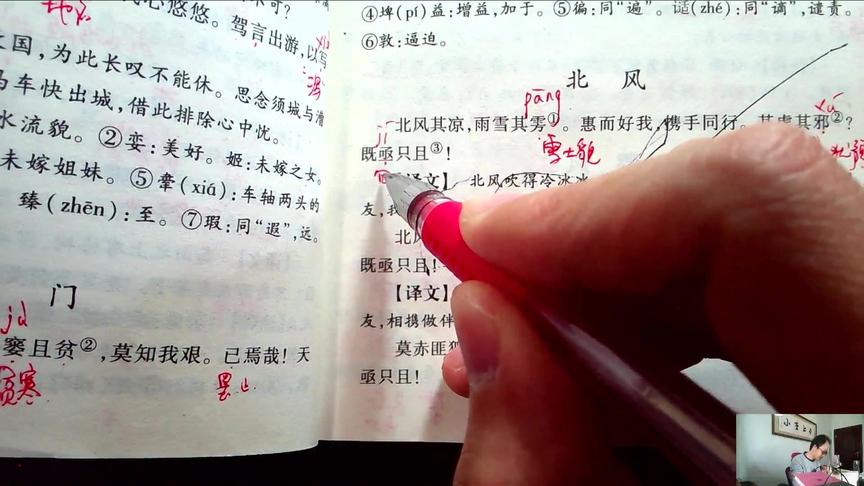 心悠悠。驾言出游,以写
国,为此长叹不能休。思念须城与漕
马车快出城,借此排除心中忧。
水流貌。②娈:美好。姬:未嫁之女。
未嫁姐妹。⑤舝(xiá):车轴两头的
臻(zhēn):至。⑦瑕:同“遐”,远。
门
jù
窭且贫②,莫知我艰。已焉哉!天
贫寒
④埤(pí)益:增益,加于。⑤徧:同“遍”。讁(zhé):同“谪”,谴责。
⑥敦:逼迫。
北 风
pāng
xú
北风其凉,雨雪其雱①。惠而好我,携手同行。其虚其邪②?
jí
既亟只且③!
雪大貌
【译文】 北风吹得冷冰冰
友,
北风
既亟只且!
【译文】
友,相携做伴
莫赤匪狐
亟只且!